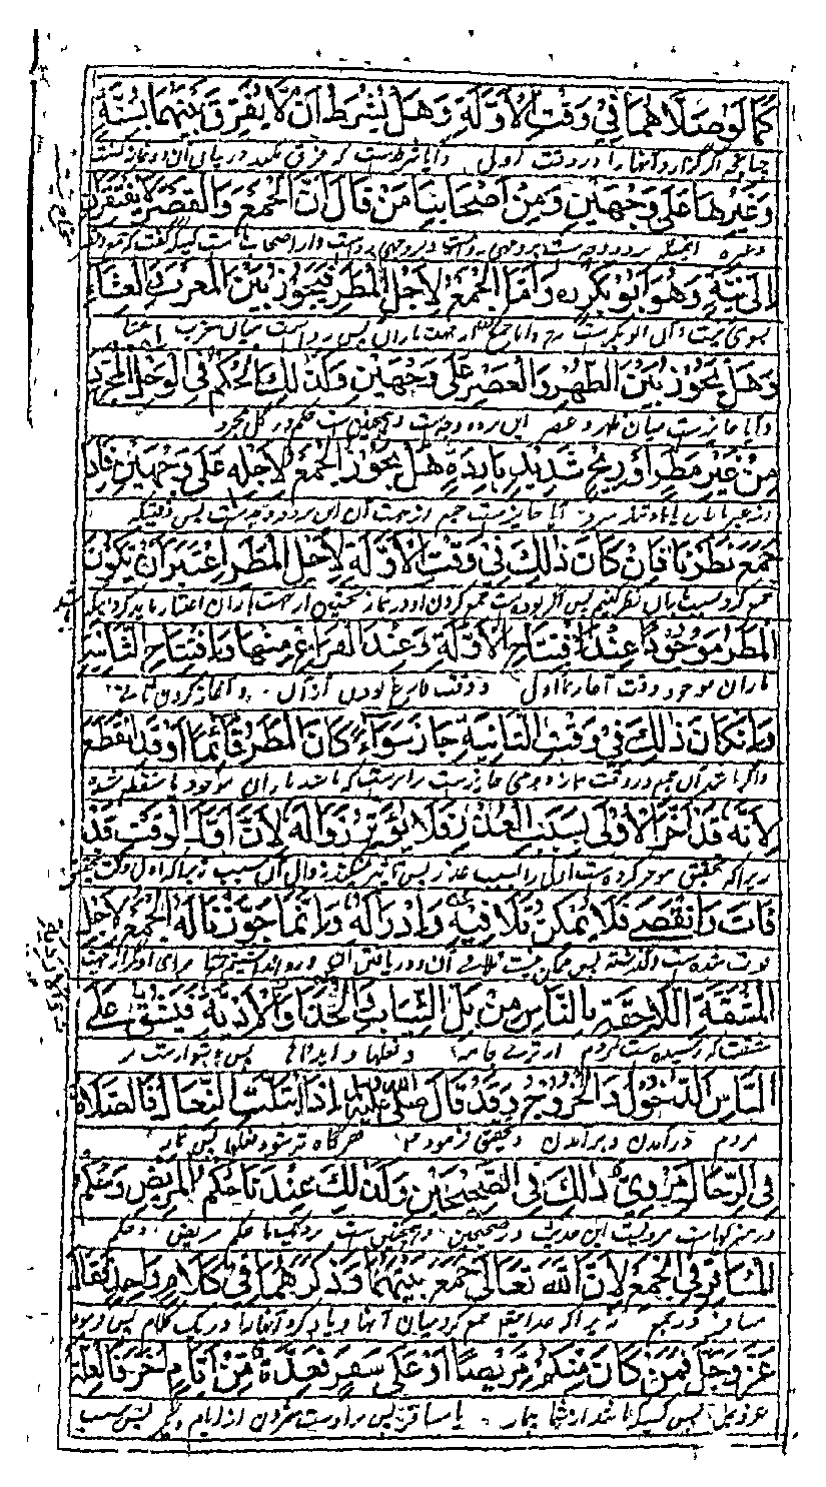 كَمَا لَوْ صَلَّاهُمَا فِيْ وَقْتِ الْأَوَّلَةِ وَهَلْ يُشْرَطُ اَنْ لَّا يُفَرِّقَ بَيْنَهُمَا بِسُنَّةٍ
چنانچه اگر گزارد آنها را در وقت اولی و آیا شرطست که فرق نکند در میان آن دو نماز بسنت
وَغَيْرِهَا عَلَى وَجْهَيْنِ وَمِنْ اَصْحَابِنَا مَنْ قَالَ اَنَّ الْجَمْعَ وَالْقَصْرَ لَا يَفْتَقِرَانِ
وغیره
اِلَى نِيَّةٍ وَهُوَ اَبُوْ بَكْرٍ وَاَمَّا الْجَمْعُ لِاَجْلِ الْمَطَرِ فَيَجُوْزُ بَيْنَ الْمَغْرِبِ وَالْعِشَاءِ
بسوی نیت و آن ابو بکرست و اما جمع از جهت باران پس رواست میان مغرب و عشا
وَهَلْ يَجُوْزُ بَيْنَ الظُّهْرِ وَالْعَصْرِ عَلَى وَجْهَيْنِ وَكَذٰلِكَ الْحُكْمُ فِي الْوَحْلِ الْمُجَرَّدِ
و آیا جائزست میان ظهر و عصر این بر دو وجهست و همچنین ست حکم در گل مجرد
مِنْ غَيْرِ مَطَرٍ اَوْ رِيْحٍ شَدِيْدٍ بَارِدَةٍ هَلْ يَجُوْزُ الْجَمْعُ لِاَجْلِهِ عَلَى وَجْهَيْنِ فَاِذَا
از غیر باران یا باد تند سرد آیا جایزست جمع از جهت آن این بر دو وجه ست پس وقتیکه
جَمَعَ نَظَرْنَا فَاِنْ كَانَ ذٰلِكَ فِيْ وَقْتِ الْاَوَّلَةِ لِاَجْلِ الْمَطَرِ اعْتُبِرَ اَنْ يَكُوْنَ
جمع کرد نظر کنیم پس اگر بوده ست جمع کردن او در نماز نخستین از جهت باران اعتبار باید کرد اینکه
الْمَطَرُ مَوْجُوْدًا عِنْدَ افْتِتَاحِ الْاَوَّلَةِ وَعِنْدَ الْفَرَاغِ مِنْهَا وَافْتِتَاحِ الثَّانِيَةِ
باران موجود وقت آغاز اولی و وقت فارغ بودن از آن و آغاز کردن ثانیه
وَاِنْ كَانَ ذٰلِكَ فِيْ وَقْتِ الثَّانِيَةِ جَازَ سَوَاءٌ كَانَ الْمَطَرُ قَائِمًا اَوْ قَدِ انْقَطَعَ
و اگر باشد آن جمع در وقت جائزست برابرست که باشد باران موجود یا منقطع شده
لِاَنَّهُ قَدْ اَخَّرَ الْاُوْلَى بِسَبَبِ الْعُذْرِ فَلَا يُؤَثِّرُ زَوَالُهُ لِاَنَّ اَوَّلَ الْوَقْتِ قَدْ
زیرا که تحقیق موخر کرده ست اولی را بسبب عذر پس تاثیر نمیکند زوال آن سبب زیرا که اول وقت بتحقیق
فَاتَ وَانْقَضٰى فَلَا يُمْكِنُ تَلَافِيْهِ وَاِدْرَاكُهُ وَاِنَّمَا جَوَّزْنَا لَهُ الْجَمْعَ لِاَجْلِ
فوت شده ست و گذشته پس ممکن نیست تلافی آن و دریافتن آن
الْمَشَقَّةِ اللَّاحِقَةِ بِالنَّاسِ مِنْ بَلِّ الثِّيَابِ وَالْحِذَاءِ وَالْاَذِيَّةِ فَيَشُقُّ عَلَى
مشقت که رسیده ست بمردم از تری جامه و نعلها و ایذا پس دشوارست بر
النَّاسِ الدُّخُوْلُ وَالْخُرُوْجُ وَقَدْ قَالَ صَلَّى اللّٰهُ عَلَيْهِ وَسَلَّمَ اِذَا ابْتَلَّتِ النِّعَالُ فَالصَّلَاةُ
مردم درآمدن و برآمدن و تحقیق فرموده هرگاه تر شود نعلها پس نماز
فِي الرِّحَالِ مَرْوِيٌّ ذٰلِكَ فِي الصَّحِيْحَيْنِ وَكَذٰلِكَ عِنْدَنَا حُكْمُ الْمَرِيْضِ وَحُكْمُ
مرویست این حدیث در صحیحین و همچنین ست نزدیک ما حکم مریض و حکم
الْمُسَافِرِ فِي الْجَمْعِ لِاَنَّ اللّٰهَ تَعَالَى جَمَعَ بَيْنَهُمَا وَذَكَرَهُمَا فِيْ كَلَامٍ وَاحِدٍ فَقَالَ
مسافر در جمع زیرا که خدایتعالی جمع کرد میان آنها و یاد کرد آنها را در یک کلام پس فرمود
عَزَّ وَجَلَّ فَمَنْ كَانَ مِنْكُمْ مَرِيْضًا اَوْ عَلَى سَفَرٍ فَعِدَّةٌ مِّنْ اَيَّامٍ اُخَرَ فَالْعِلَّةُ
عزوجل پس کسیکه باشد از شما بیمار یا مسافر پس بر اوست شمردن از ایام دیگر پس سبب